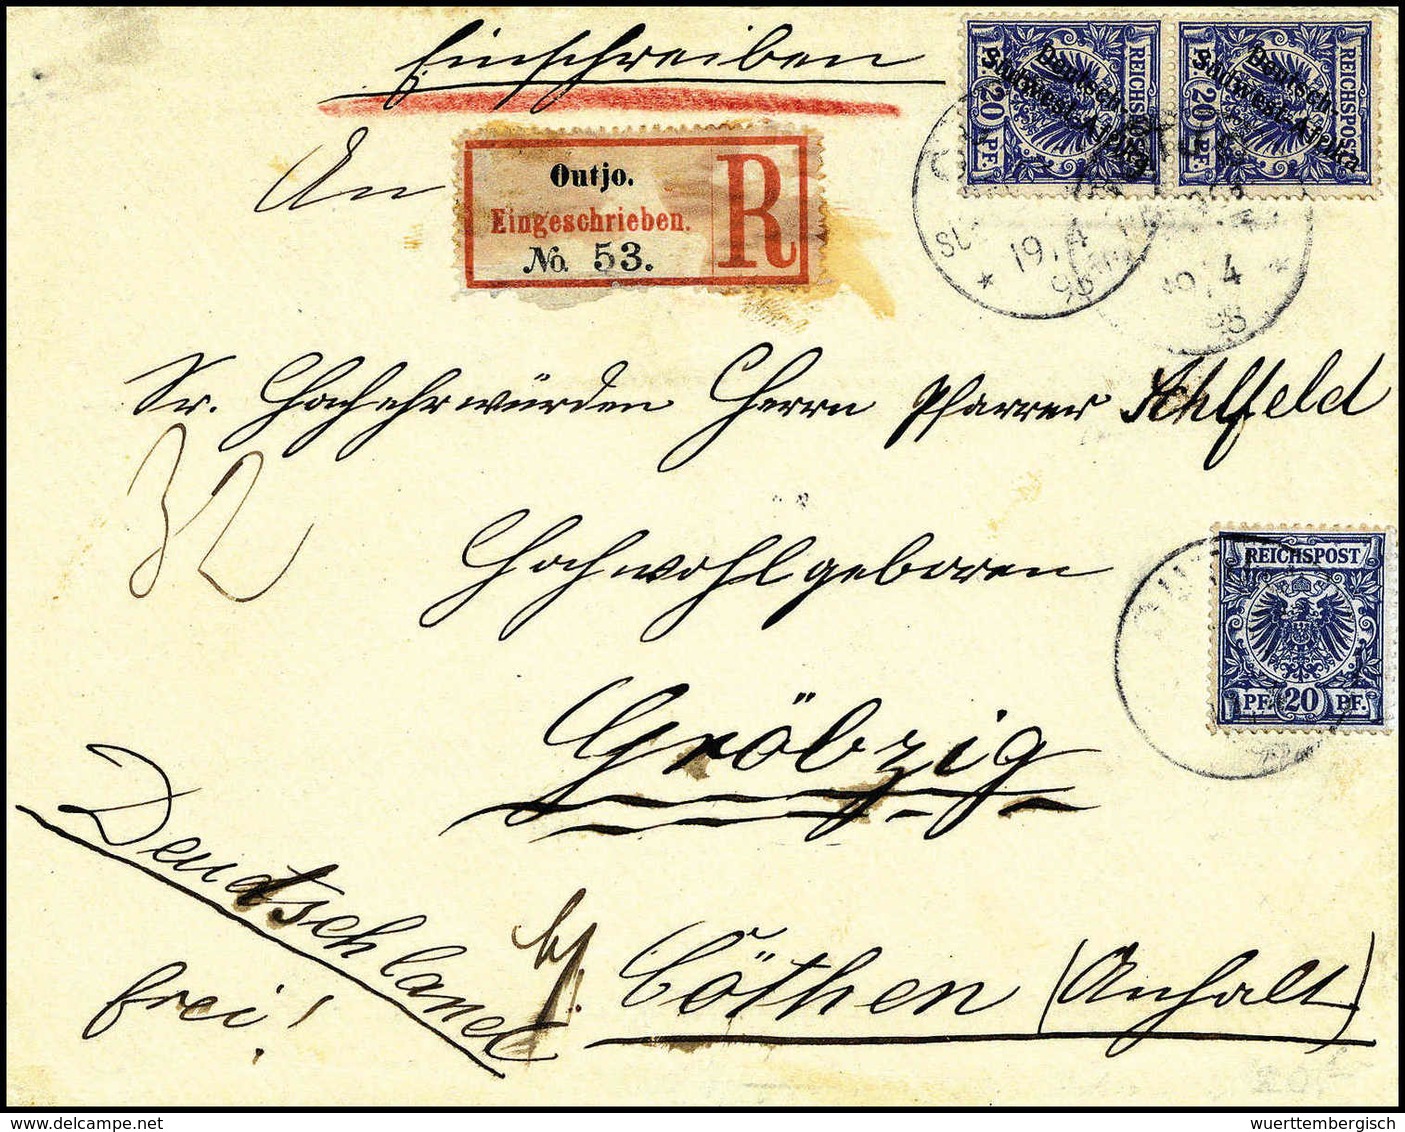 Einschreiben
An
Outjo.
Eingeschrieben.
No. 53.
R
REICHSPOST
20 PF.
Deutsch-
Südwest-Afrika
REICHSPOST
20 PF.
Deutsch-
Südwest-Afrika
19/4
98
19/4
98
Sr. Hochehrwürden Herrn Pfarrer
32
Hochwohlgeboren
REICHSPOST
PF. 20 PF.
Gröbzig
Deutschland
frei!
b/.
Cöthen (Anhalt)
wuerttembergisch